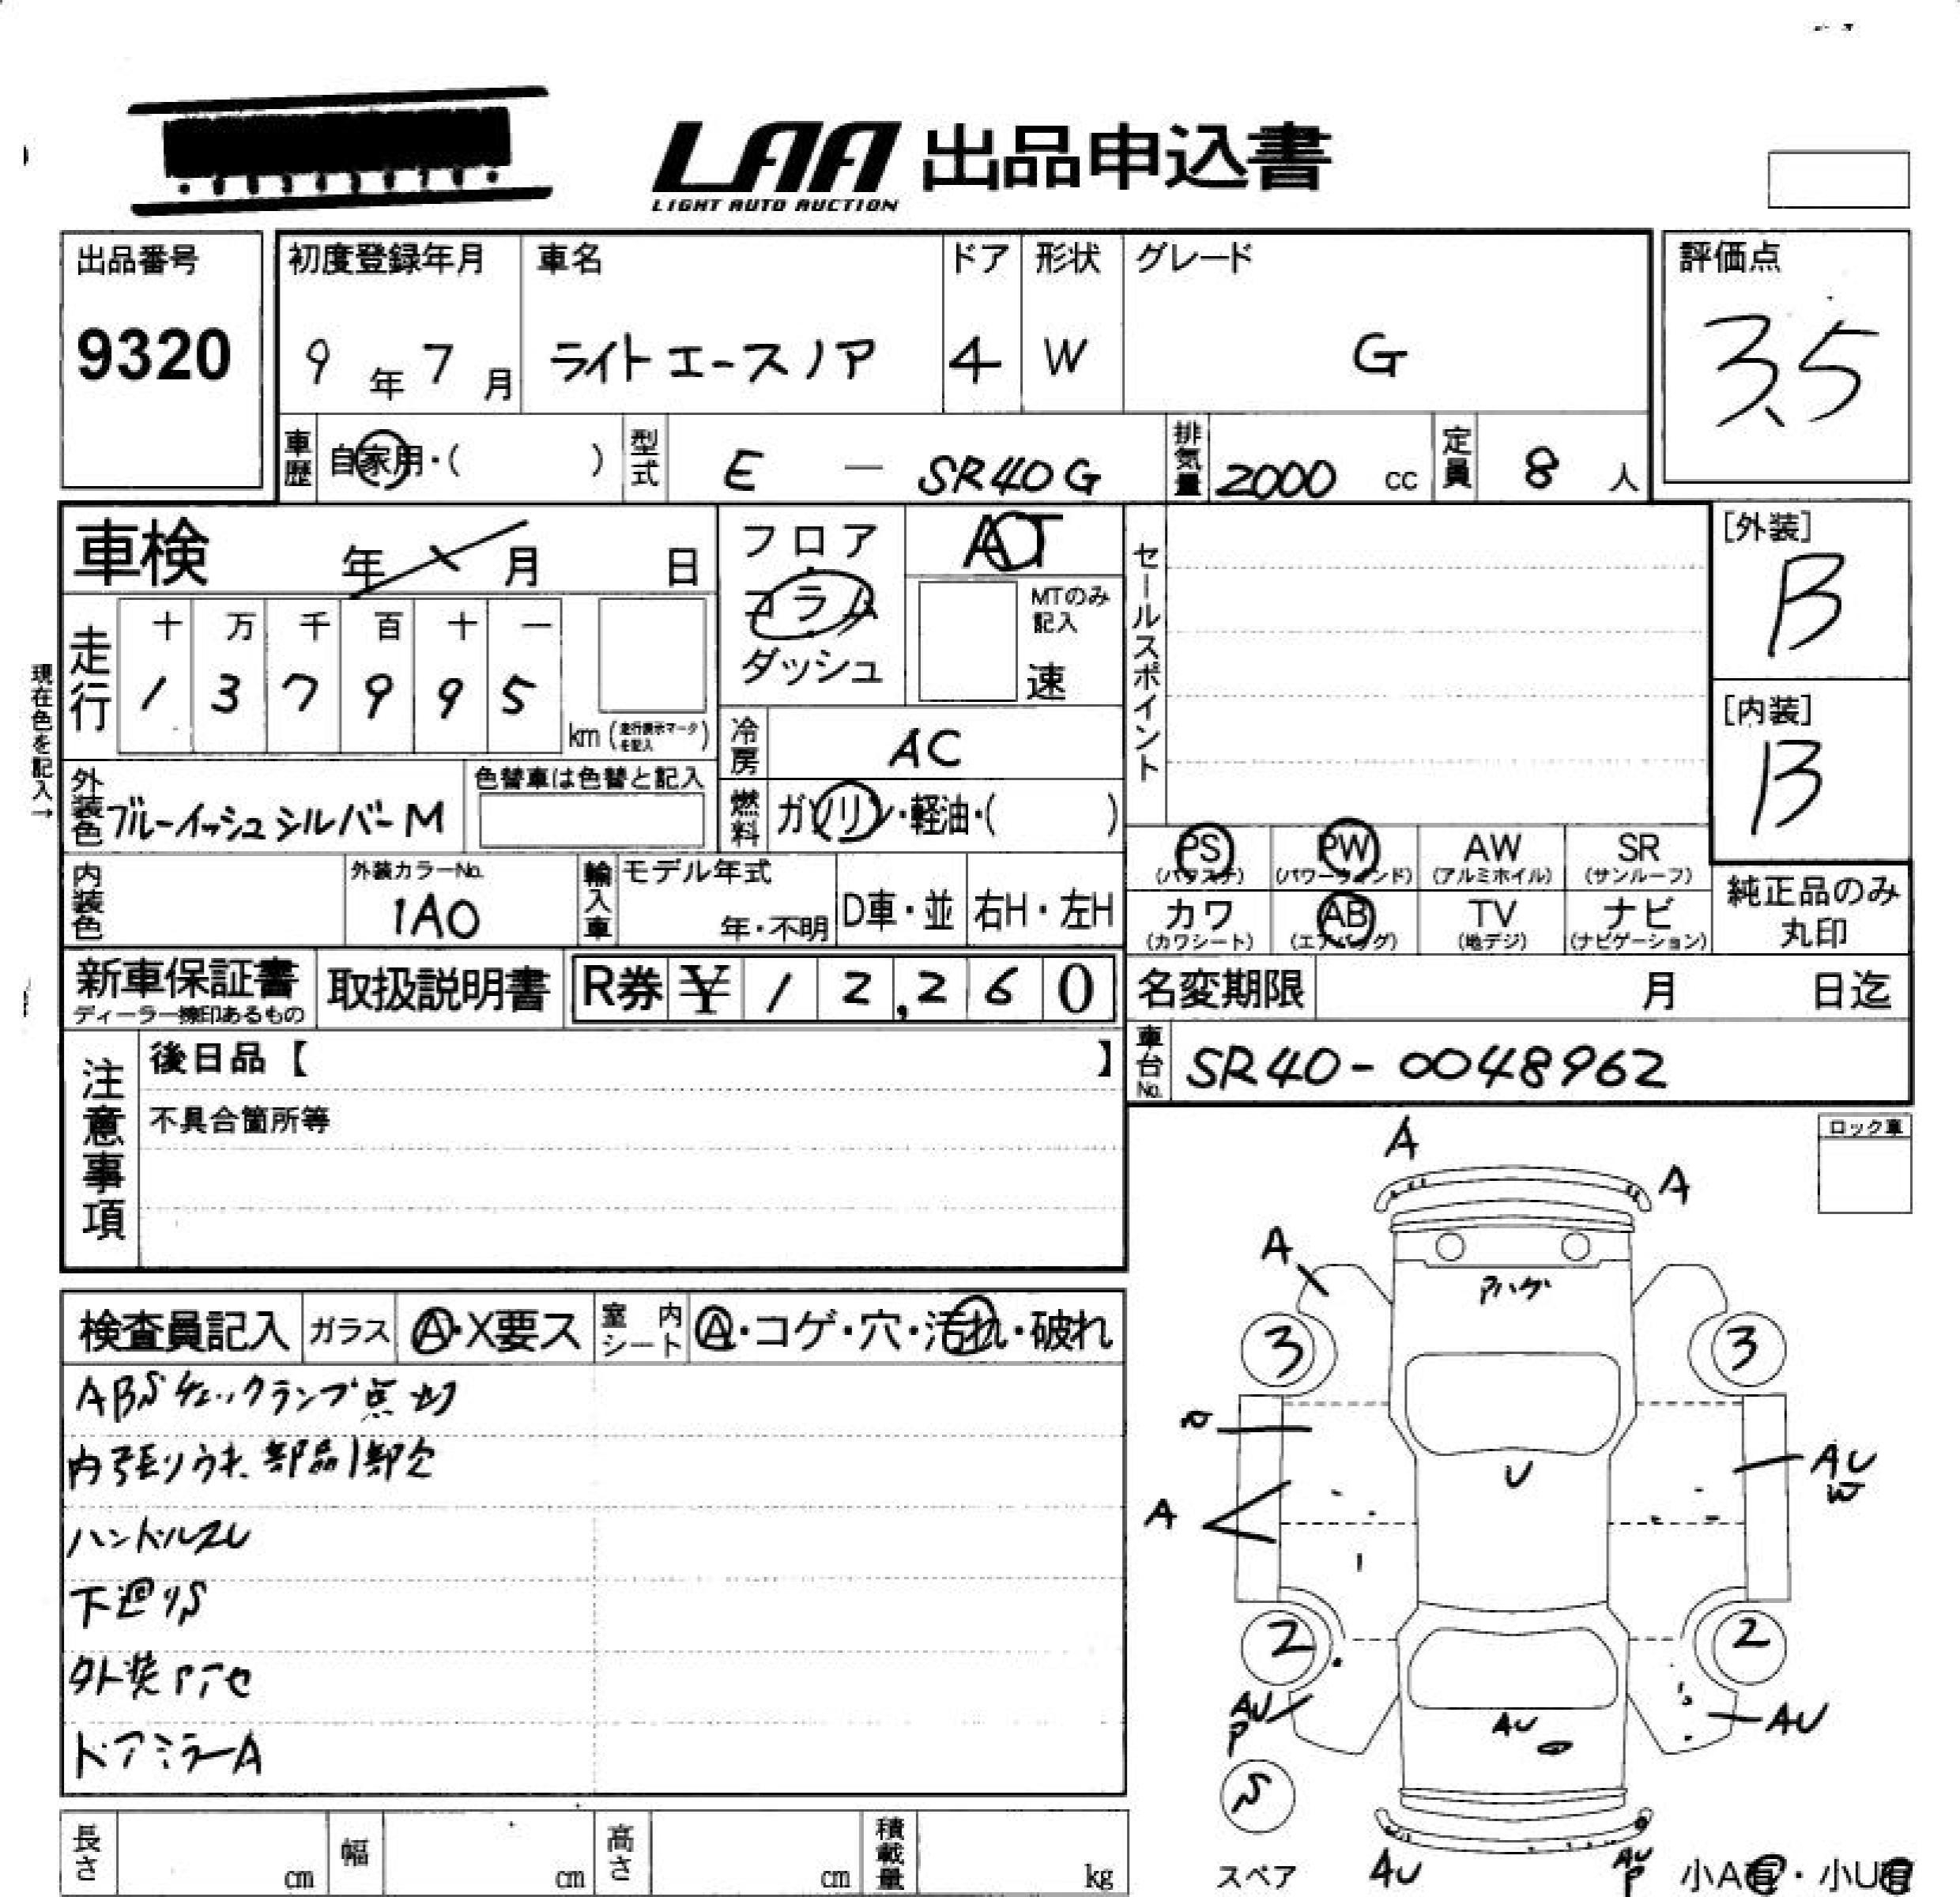 LAA 出品申込書
LIGHT AUTO AUCTION
出品番号
9320
初度登録年月
9年7月
車名
ライトエースノア
ドア
4
形状
W
グレード
G
評価点
3.5
車歴 自家用・( )
型式 E — SR40G
排気量 2000 cc
定員 8 人
車検 年 月 日
現在色を記入→
走行
十 万 千 百 十 一
1 3 7 9 9 5
km (走行表示マークを記入)
フロア
コラム
ダッシュ
AT
MTのみ記入
速
冷房 AC
燃料 ガソリン・軽油・( )
外装色 ブルーイッシュシルバーM
色替車は色替と記入
内装色
外装カラーNo.
1A0
輸入車
モデル年式
年・不明
D車・並
右H・左H
セールスポイント
[外装]
B
[内装]
B
PS (パワステ)
PW (パワーウィンド)
AW (アルミホイル)
SR (サンルーフ)
カワ (カワシート)
AB (エアバッグ)
TV (地デジ)
ナビ (ナビゲーション)
純正品のみ
丸印
新車保証書
ディーラー捺印あるもの
取扱説明書
R券 ¥ 12,260
名変期限 月 日迄
車台No. SR40-0048962
注意事項
後日品【 】
不具合箇所等
ロック車
検査員記入
ガラス A・X要ス
室内シート A・コゲ・穴・汚れ・破れ
ABSチェックランプ点灯
内張りうキ、部品1部欠
ハンドルスレ
下廻りS
外装アセ
ドアミラーA
A
A
A
アハゲ
3
3
U
A
AU
W
2
2
AU
P
AU
AU
S
スペア
AU
AU
P
小A有・小U有
長さ cm
幅 cm
高さ cm
積載量 kg